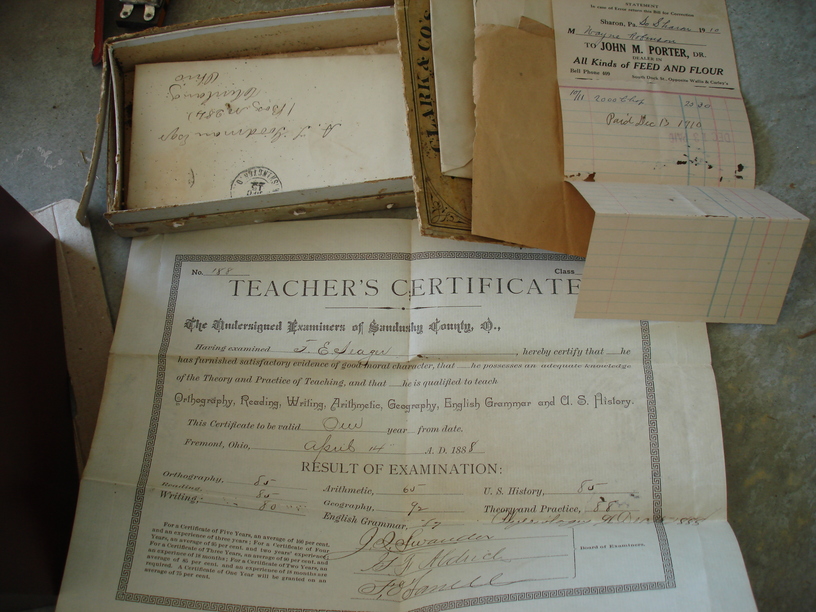 STATEMENT
In case of Error return this Bill for Correction
Sharon, Pa. 1910
M Wayne Robinson
TO JOHN M. PORTER, DR.
DEALER IN
All Kinds of FEED AND FLOUR
Bell Phone 469 South Dock St. Opposite Wallis & Carley's
10/11 2000 Chop 20 20
Paid Dec 13 1910
CLARK & CO'S
Ohio
No. 188 Class
TEACHER'S CERTIFICATE
The Undersigned Examiners of Sandusky County, O.,
Having examined T. E. Seager, hereby certify that he
has furnished satisfactory evidence of good moral character, that he possesses an adequate knowledge
of the Theory and Practice of Teaching, and that he is qualified to teach
Orthography, Reading, Writing, Arithmetic, Geography, English Grammar and U. S. History.
This Certificate to be valid One year from date.
Fremont, Ohio, April 14 A. D. 1888
RESULT OF EXAMINATION:
Orthography, 85 Arithmetic, 65 U. S. History, 85
Reading, 85 Geography, 92 Theory and Practice, 88
Writing, 80 English Grammar, 77
For a Certificate of Five Years, an average of 100 per cent.
and an experience of three years; For a Certificate of Four
Years, an average of 95 per cent. and two years' experience
For a Certificate of Three Years, an average of 90 per cent. and
an experience of 18 months; For a Certificate of Two Years, an
average of 85 per cent. and an experience of 18 months are
required. A Certificate of One Year will be granted on an
average of 75 per cent.
Board of Examiners.